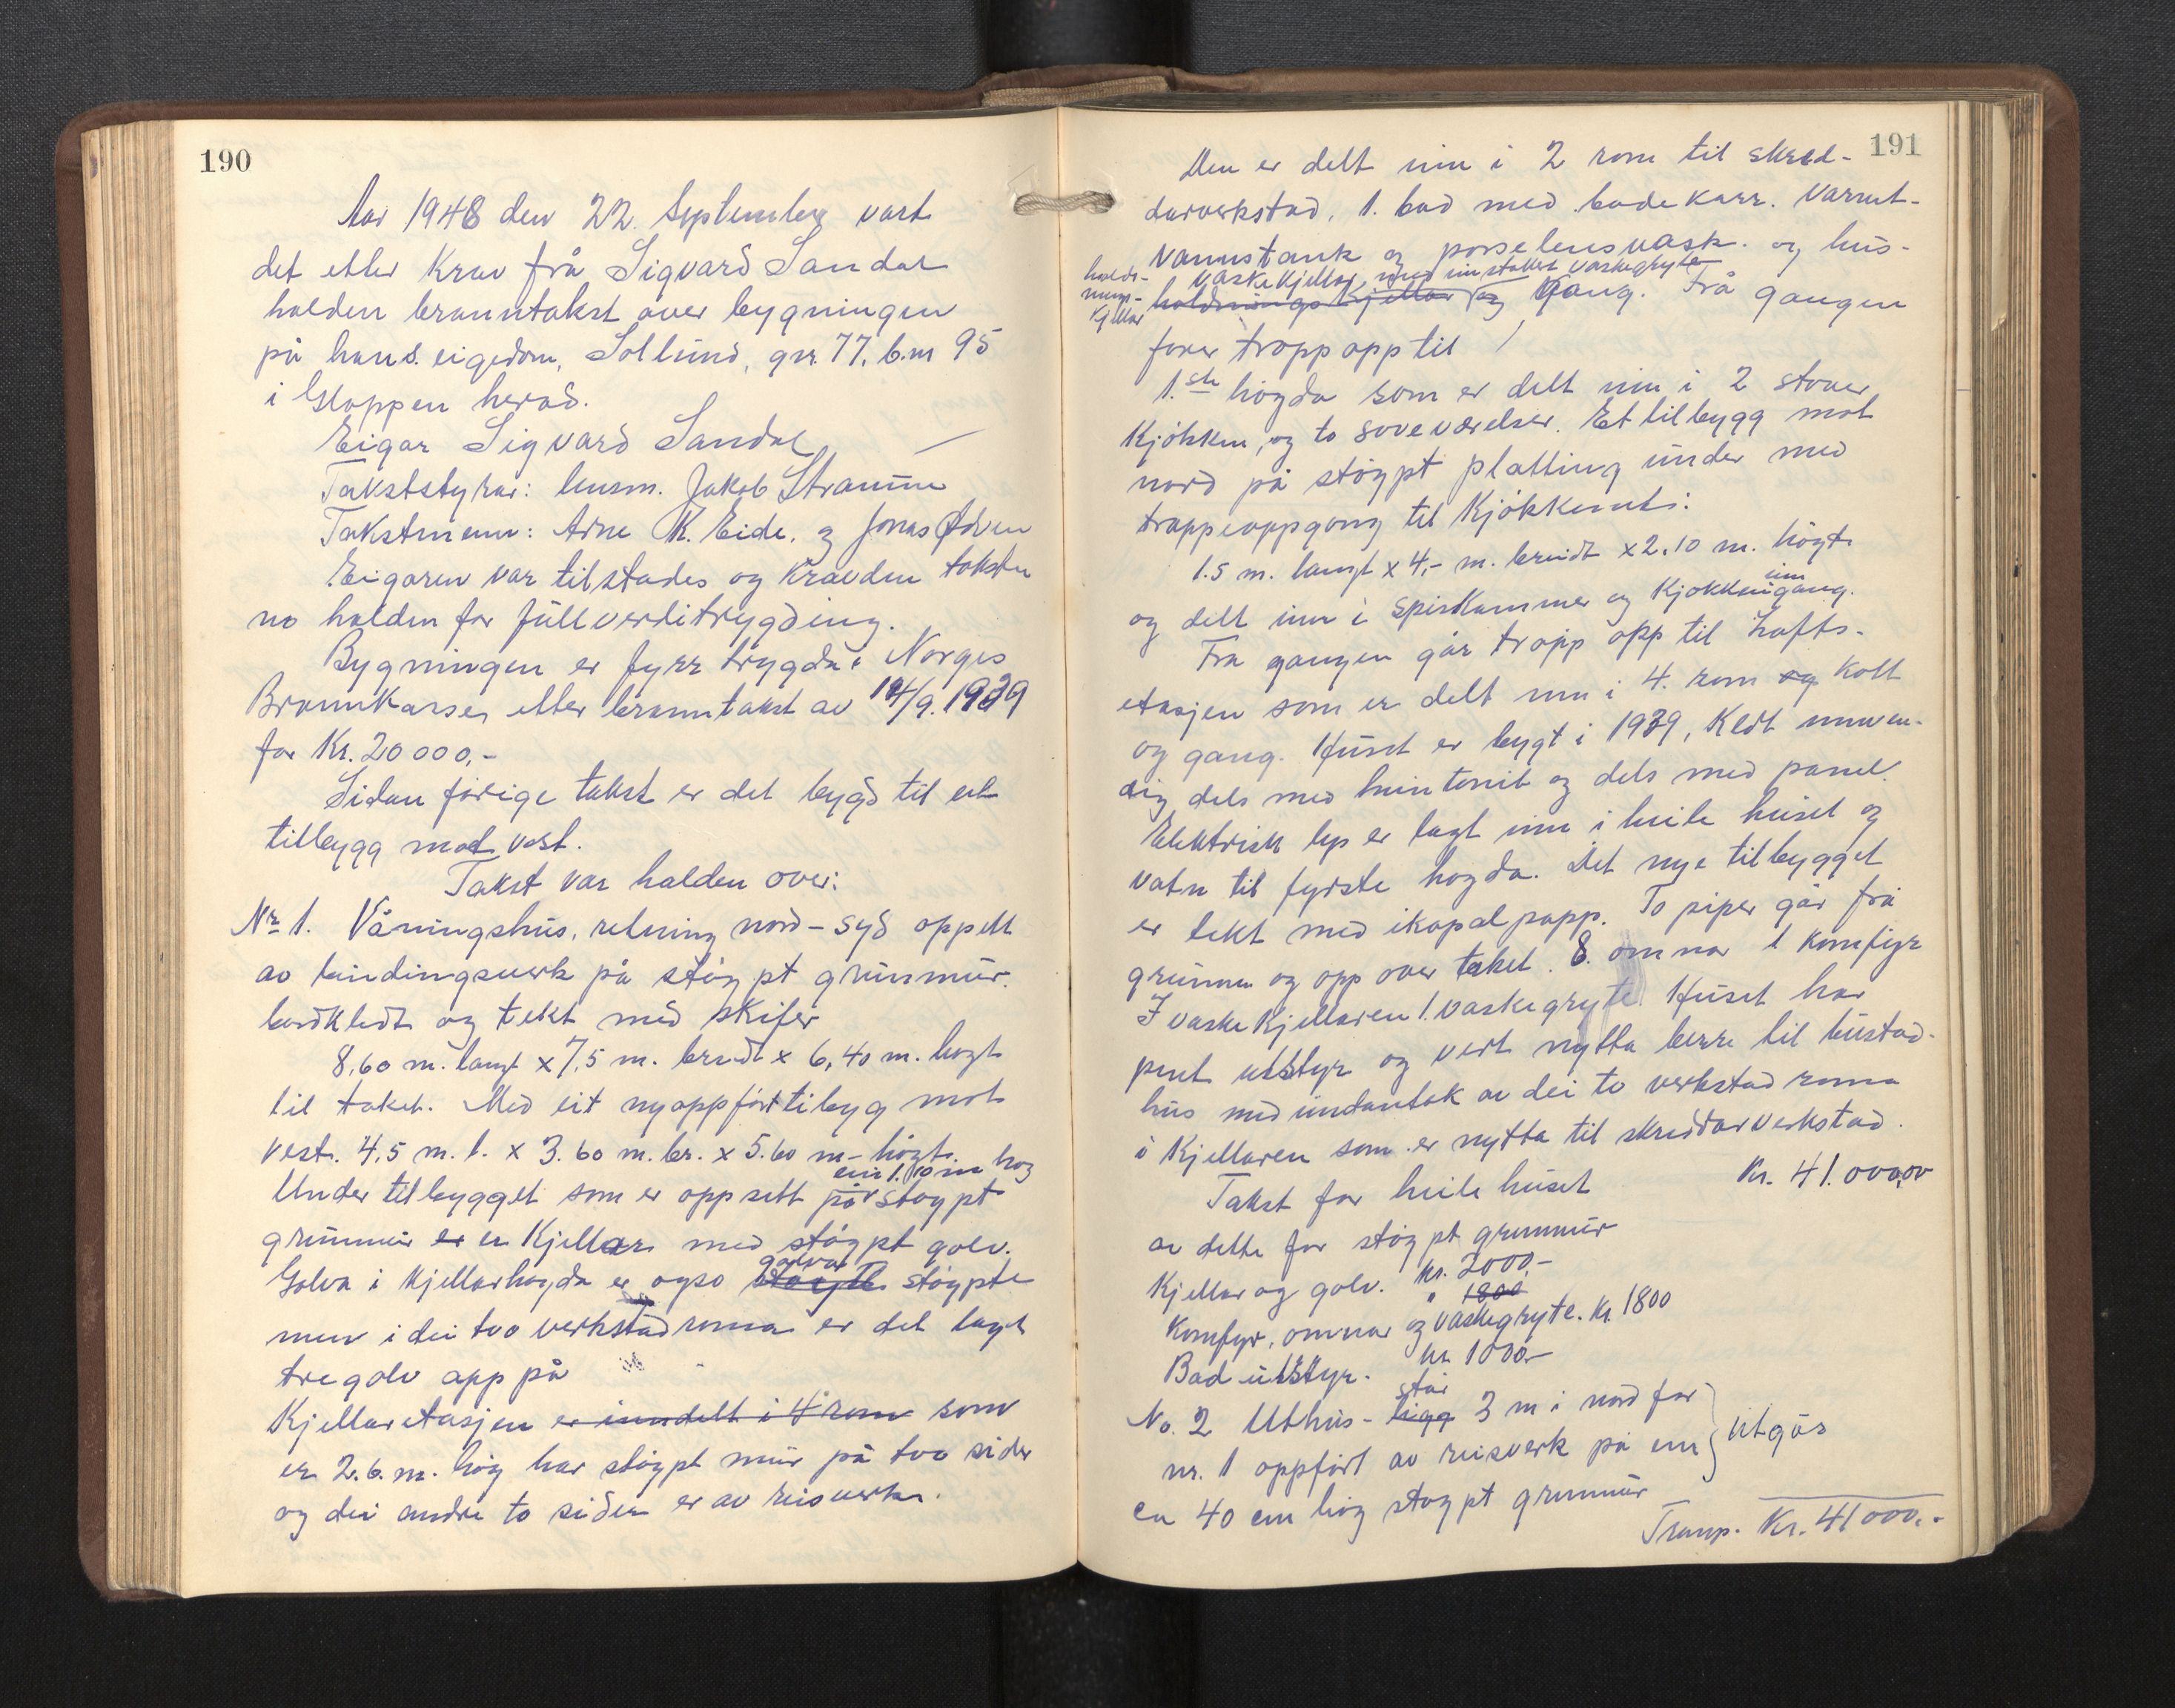 190
Aar 1948 den 22. September vart
det etter Krav frå Sigvard Sandal
halden branntakst over bygningen
på hans eigedom, Sollund, gnr. 77, b.nr 95
i Gloppen herad.
Eigar Sigvard Sandal
Takststyrar: lensm. Jakob Straume
Takstmenn: Arne K. Eide. og Jonas Ødven
Eigaren var tilstades og Kravden taksten
no halden for fullverditrygding.
Bygningen er fyrr trygda i Norges
Brannkasse, etter branntakst av 14/9.1939
for Kr. 20000,-
Sidan førige takst er det bygd til eit
tilbygg mot vest.
Takst var halden over:
Nr 1. Våningshus, retning nord-syd oppsett
av bindingsverk på støypt grunmur.
bordkledt og tekt med skifer
8,60 m. langt x 7,5 m. breidt x 6,40 m. høgt
til taket. Med eit nyoppført tilbyg mot
vest. 4,5 m. l. x 3.60 m. br. x 5.60 m- høgt.
ein 1.10 m høg
Under tilbygget som er oppsett på støypt
grunmur er er Kjellar med støypt golv.
golva
Golva i Kjellarhøgda er ogso støypte støypte
men i dei tvo verkstadroma er det lagt
tregolv app på
Kjellaretasjen er inndelt i 4 rom som
er 2.6. m. høg har støypt mur på tvo sider
og dei andre to sider er av reisverk.
191
Den er delt inn i 2 rom til skred-
darverkstad, 1. bad med badekarr. Varmt-
vannstank og porselensvask. og hus-
halds- vaskekjellar, med innstøbt vaskegryte
nings- holdningskjellar og Gang. Frå gangen
Kjellar
fører tropp opp til
1.ste høgda som er delt inn i 2 stover
Kjøkken, og to soveværelser. Et tilbygg mot
nord på støypt platting under med
trappeoppgang til Kjøkkenet:
1.5 m. langt x 4,- m. breidt x 2,10 m. høgt
inn
og delt inn i spiskammer og Kjøkkengang.
Fra gangen går tropp opp til Lofts-
etasjen som er delt inn i 4. rom og Kott
og gang. Huset er bygt i 1939, Kledt innven-
dig dels med huntonit og dels med panel.
Elektrisk lys er lagt inn i heile huset og
vatn til fyrste høgda. Det nye tilbygget
er tekt med ikopalpapp. To piper går frå
grunnen og opp over taket. 8. omnar 1 Komfyr
I vaskekjellaren 1. vaskegryte. Huset har
pent utstyr og vert nytta berre til bustad-
hus med undantak av dei to verkstadroma
i Kjellaren som er nytta til skreddarverkstad.
Takst for heile huset Kr. 41.000,00
av dette for støypt grunmur
Kjellar og golv. kr. 2000,-
" 1800
Komfyr, omnar og vaskegryte. Kr. 1800
Bad utstyr. kr 1000.-
står
No. 2 Uthus - ligg 3 m i nord for
nr. 1 oppført av reisverk på ein
Utgår
en 40 cm høg støypt grunmur
Transp. Kr. 41000,-